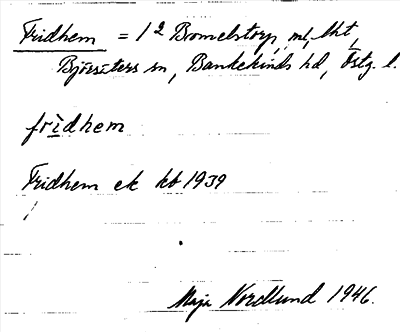 Fridhem = 1 2 Bromelstorp, ml, lht,
Björsäters sn, Bankekinds hd, Östg. l.
fridhem
Fridhem ek kb 1939
Maja Nordlund 1946.